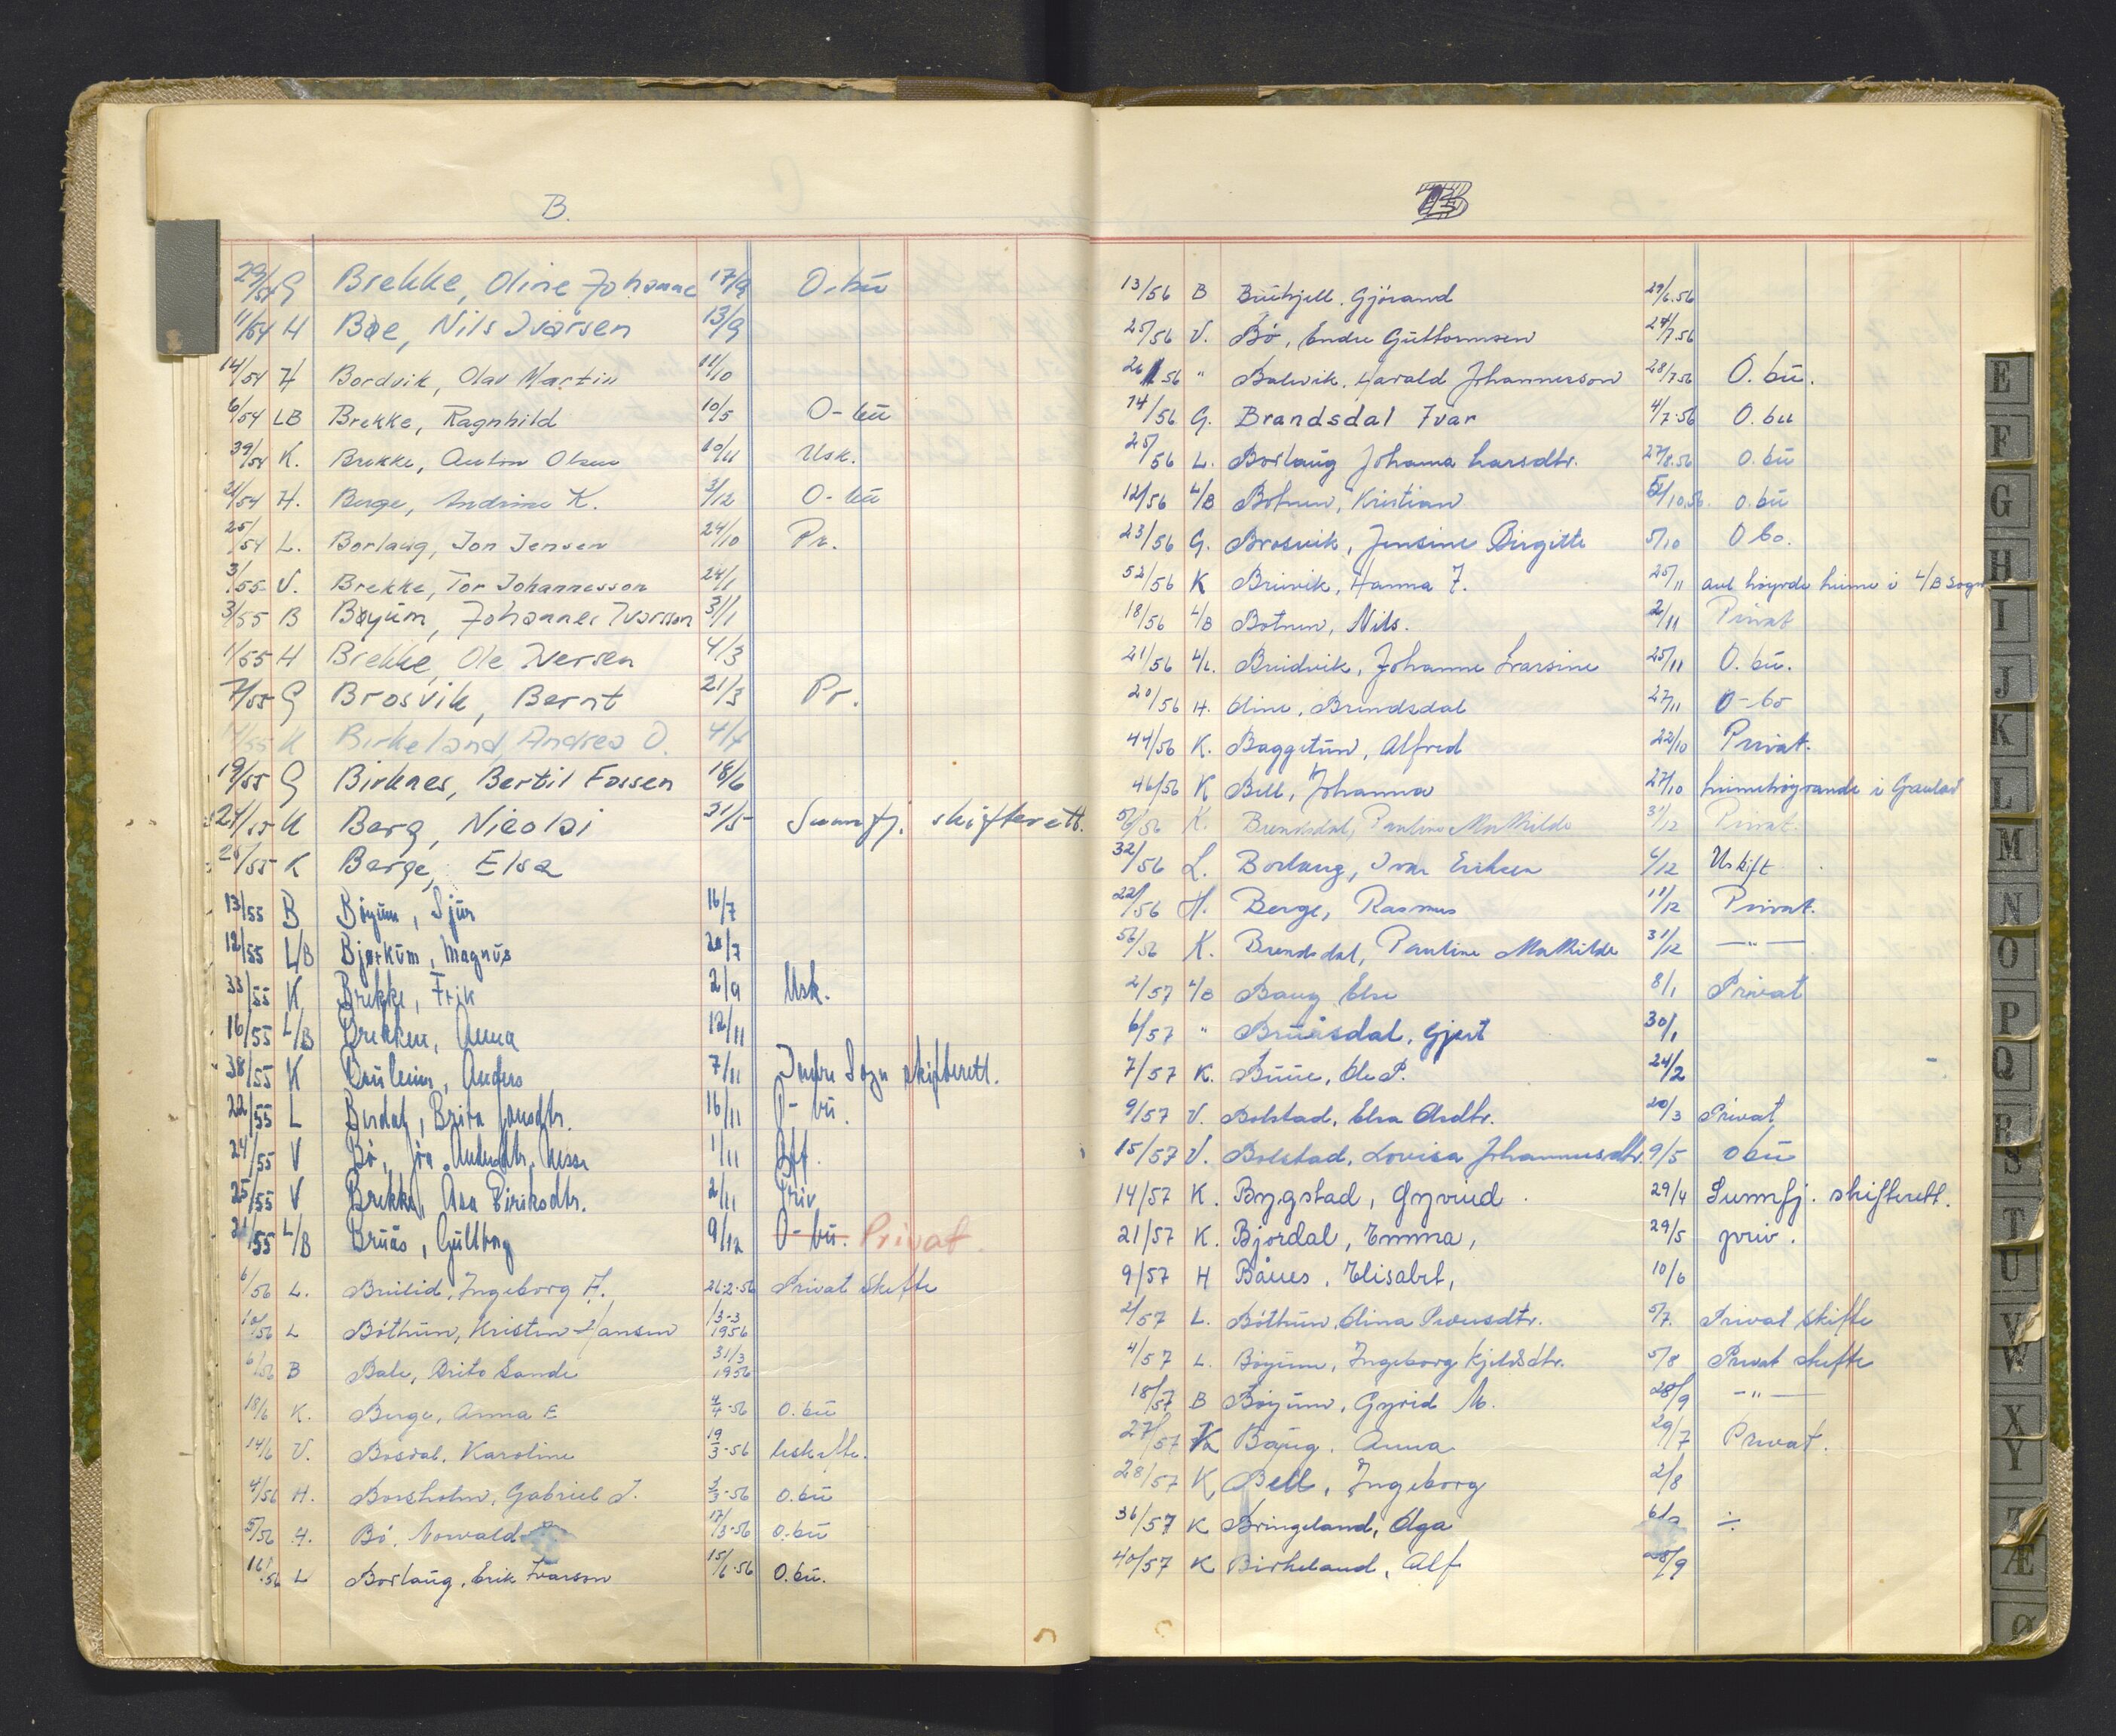 B.
29/54 G Brekke, Oline Johanne 17/9 O.bü
11/54 H Bøe, Nils Ivarsen 13/9
14/54 H Bordvik, Olav Martin 11/10
6/54 LB Brekke, Ragnhild 10/5 O-bü
39/54 K. Brekke, Anton Olsen 10/11 Usk.
21/54 H. Berge, Andrine K. 3/12 O-bü
25/54 L. Borlaug, Jon Jensen 24/10 Pr.
3/55 V. Brekke, Tor Johannesson 24/1
3/55 B Bøyüm, Johannes Ivarsson 31/1
1/55 H Brekke, Ole Iversen 4/3
7/55 G Brosvik, Bernt 21/3 Pr.
K Birkeland, Andrea O. 4/4
19/55 G Birknes, Bertil Fossen 18/6
24/55 K Berg, Nicolai 31/5 Sunnfj. skifterett.
/55 K Berge, Elsa
13/55 B Bøyüm, Sjür 16/7
12/55 L/B Bjørküm, Magnüs 20/7
33/55 K Brekke, Erik 2/9 Usk.
16/55 L/B Brekken, Anna 12/11
38/55 K Anders 7/11 Indre Sogn skifterett.
22/55 L Berdal, Brita Jonsdtr. 16/11 O-bü.
24/55 V Bö, 1/11
25/55 V Brekke, Åsa Eiriksdtr. 2/11 Priv
21/55 L/B Brüås, Güllborg 9/12 O-bü. Privat.
6/56 L. Brulid, Ingeborg A. 26.2-56 Privat skifte
10/56 L Böthün, Kristen Hansen 13-3 1956
6/56 B Bale, Brita Sande 31/3 1956
18/6 K. Berge, Anna E 4/4-56 O.bü
14/6 V. Karoline 19/3-56 Uskifte.
4/56 H. Borsholm, Gabriel J. 3/3-56 O.bü
5/56 H. Bö, Norvald 17/3-56 O.bü
16/56 L Borlaüg, Erik Ivarson 15/6-56 O.bü.
B
13/56 B Gjörand 29/6.56
25/56 V. Bö, Endre Güttormsen 27/7.56
26/56 " Balevik, Harald Johannesson 28/7.56 O.bü.
14/56 G. Brandsdal Ivar 4/7-56 O.bu
25/56 L. Borlaüg Johanna Larsdtr. 27/8.56 O.bü
12/56 L/B Botnen, Kristian 5/10.56. O.bü
23/56 G. Brosvik, Jensine Birgitte 5/10 O bo.
52/56 K Hanna J. 25/11 avl höyrde heime i L/B sogn
18/56 L/B Botnen, Nils. 2/11 Privat
21/56 L/L. Breidvik, Johanne Larsine 25/11 O.bü.
20/56 H. Oline, Brendsdal 27/11 O-bo
44/56 K. Baggetün, Alfred 22/10 Privat.
46/56 K Bell, Johanna 27/10 heimehöyrande i Gaular
56/56 K. Brendsdal, Pauline Mathilde 31/12 Privat.
32/56 L. Borlaug, Ivar Eriksen 6/12 Uskift
22/56 H. Berge, Rasmus 11/12 Privat.
56/56 K. Brendsdal, Pauline Mathilde 31/12 —"—
2/57 L/B Baug Else 8/1 Privat
6/57 " Brüåsdal, Gjert 30/1
7/57 K. Ole P. 24/2
9/57 V. Bolstad, Elsa Olsdtr. 20/3 Privat
15/57 V. Bolstad, Lovisa Johannesdtr. 9/5 O bü
14/57 K. Bygstad, Gyrüd 29/4 Sunnfj. skifterett.
21/57 K. Bjordal, Emma, 29/5 priv.
9/57 H Elisabet, 10/6
2/57 L. Böthün, Olina 5/7. Privat skifte
4/57 L. Böyüm, Ingeborg Kjeldsdtr. 5/8 Privat skifte
18/57 B Böyüm, Gyrid M. 28/9 —"—
27/57 K Baüg, Anna 29/7 Privat.
28/57 K Bell, Ingeborg 2/8
36/57 K Bringeland, Olga 6/9 ÷
40/57 K Birkeland, Alf 28/9
E
F
G
H
I
J
K
L
M
N
O
P
Q
R
S
T
U
V
W
X
Y
Z
Æ
Ø